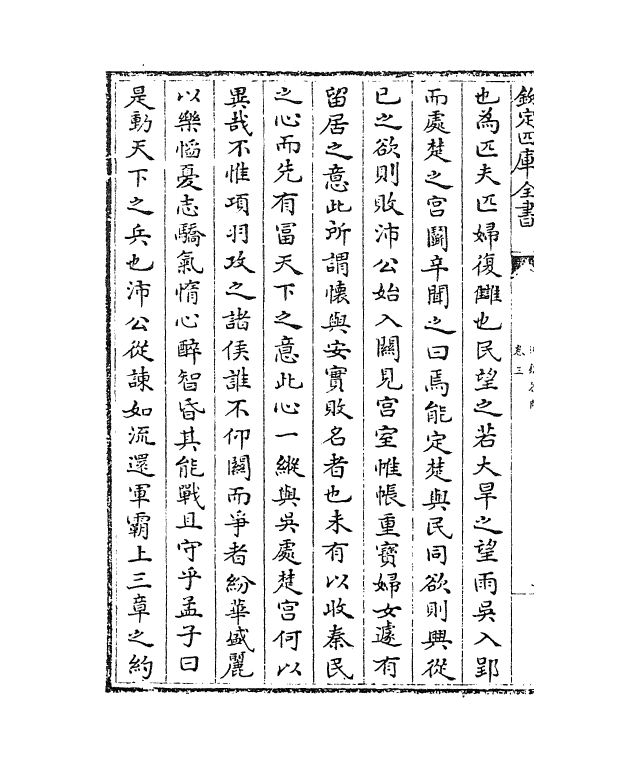 欽定四庫全書
卷三
也為匹夫匹婦復雠也民望之若大旱之望雨吳入郢
而處楚之宫鬬辛聞之曰焉能定楚與民同欲則興從
已之欲則敗沛公始入關見宫室帷帳重寳婦女遽有
留居之意此所謂懐與安實敗名者也未有以收秦民
之心而先有富天下之意此心一縱與吳處楚宫何以
異哉不惟項羽攻之諸侯誰不仰關而爭者紛華盛麗
以樂慆憂志驕氣惰心醉智昏其能戰且守乎孟子曰
是動天下之兵也沛公從諫如流還軍霸上三章之約